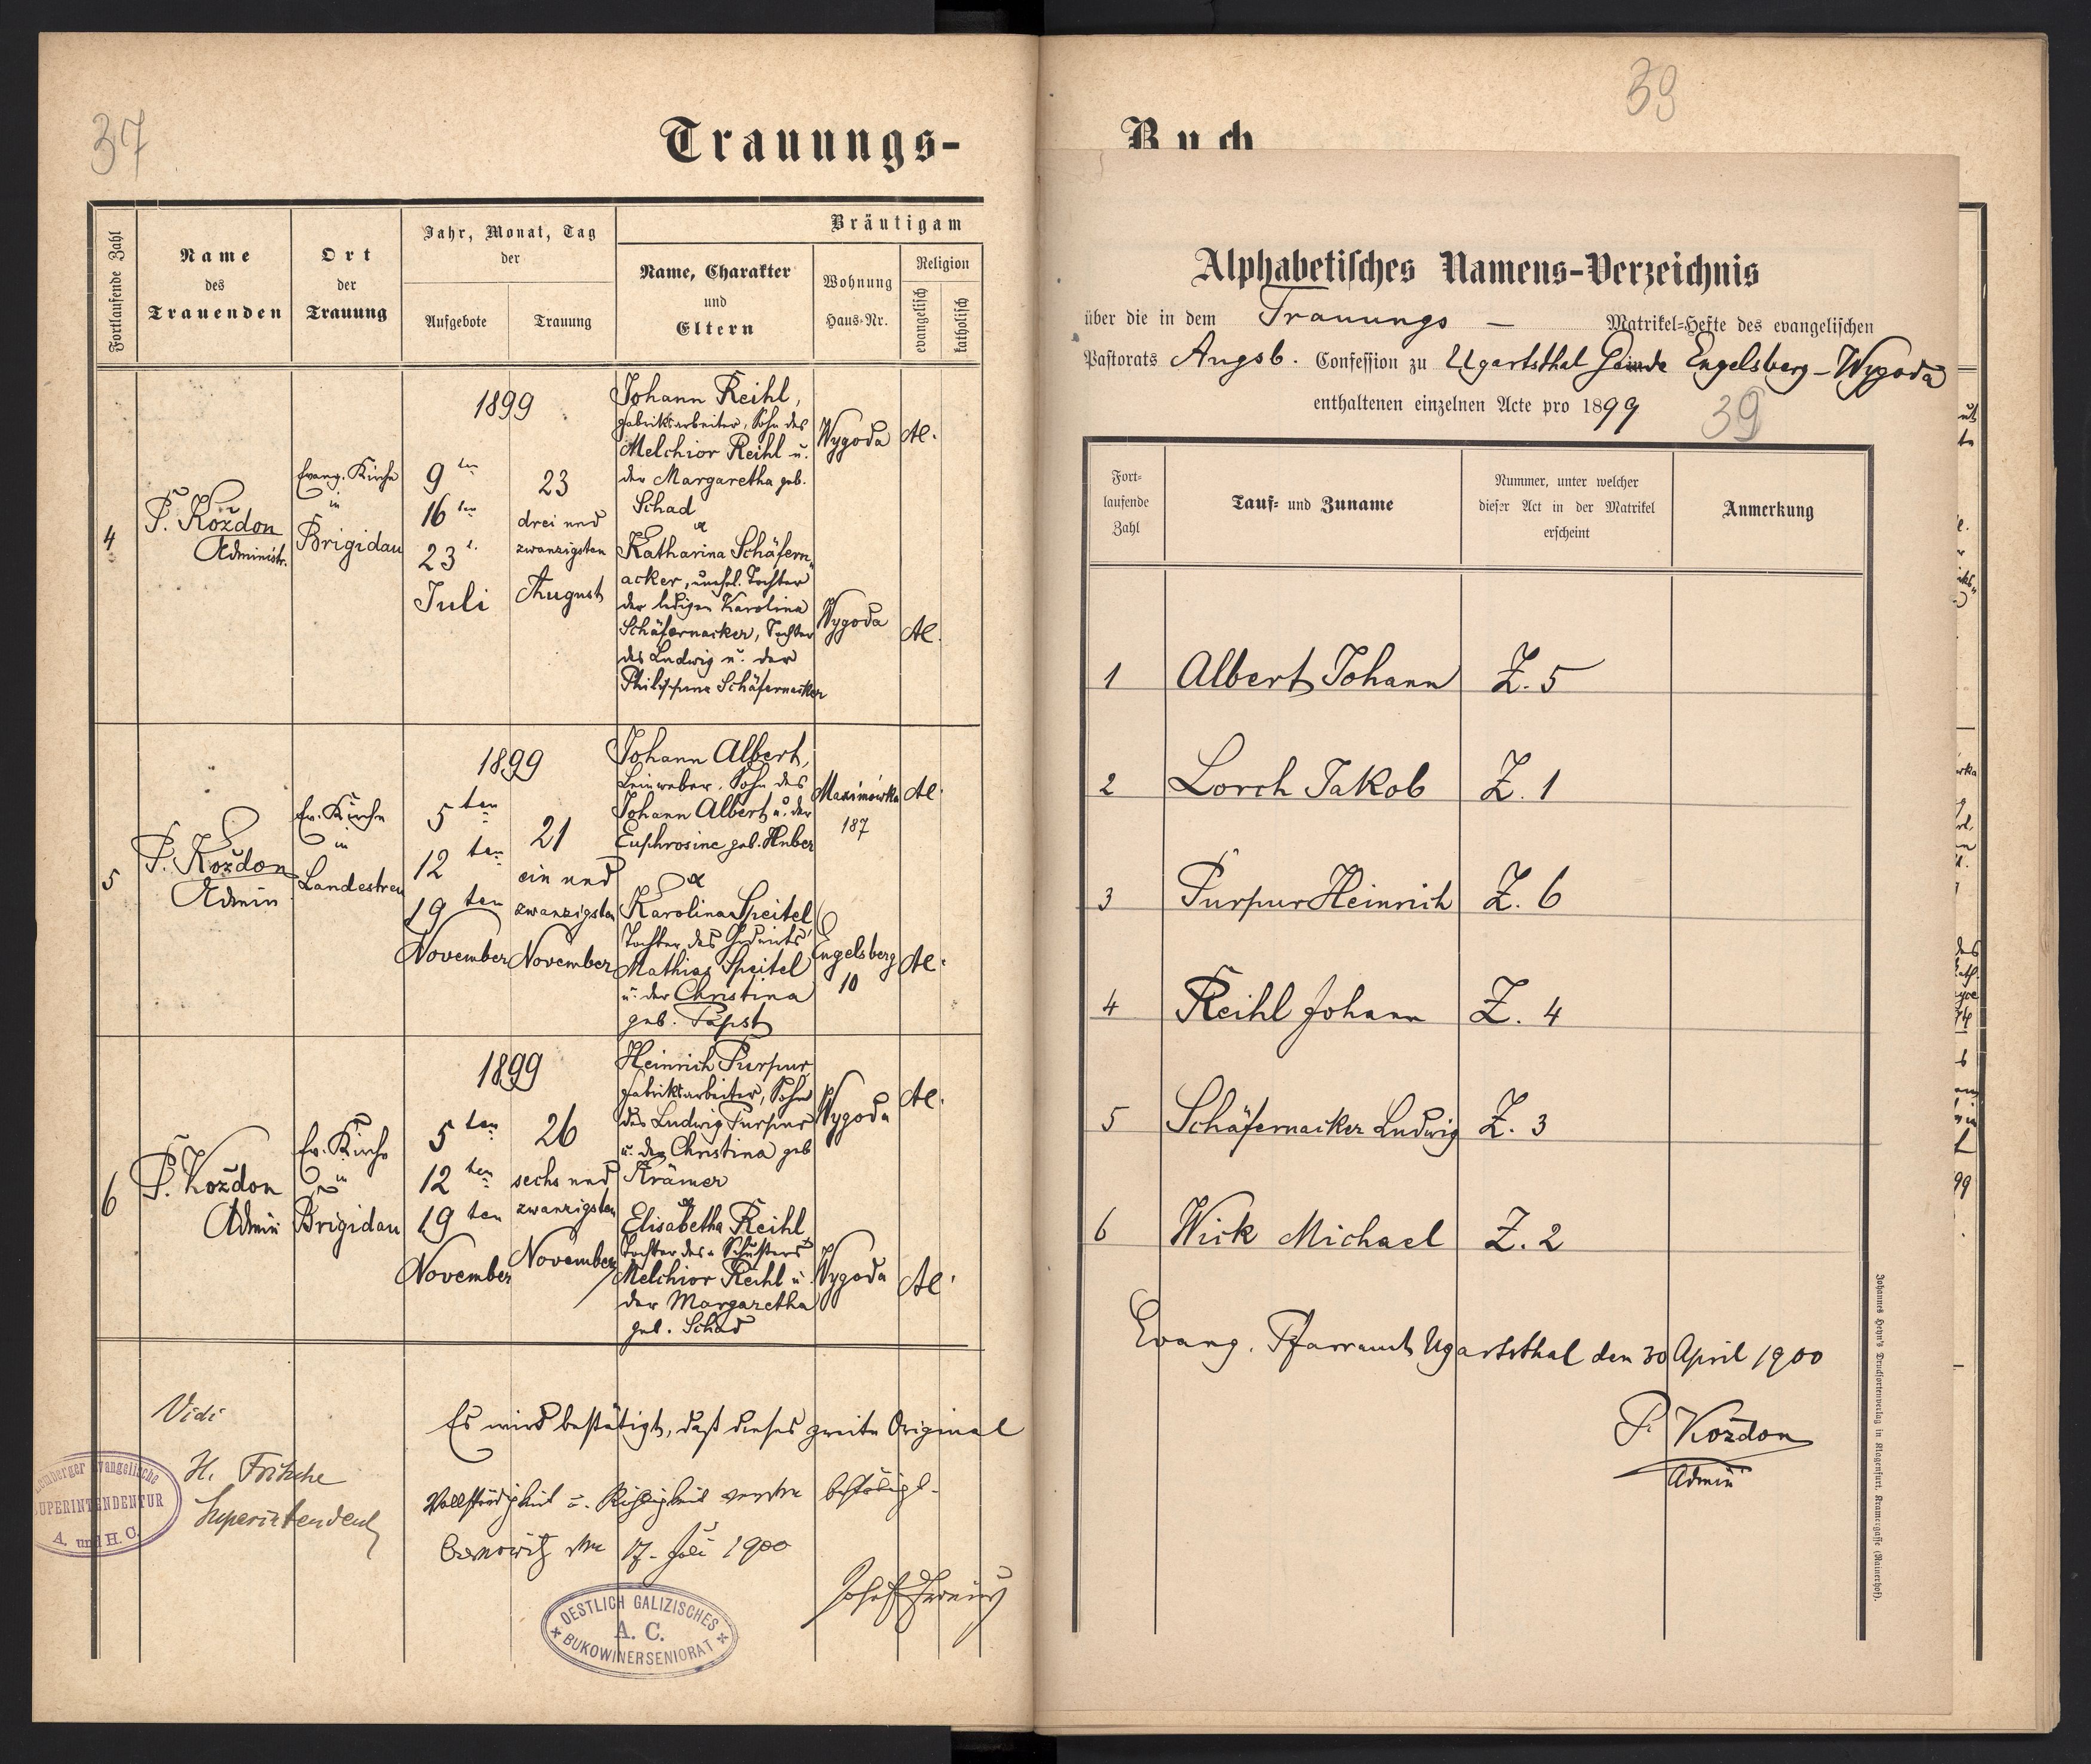 37
Trauungs-
Fortlaufende Zahl
Name
des
Trauenden
Ort
der
Trauung
Jahr, Monat, Tag
der
Aufgebote
Trauung
Bräutigam
Name, Charakter
und
Eltern
Wohnung
Haus-Nr.
Religion
evangelisch
katholisch
4
P. Koždon
Administr.
Evang. Kirche
in
Brigidau
1899
9 ten
16 ten
23 t.
Juli
23
drei und
zwanzigsten
August
Johann Reihl,
Fabriksarbeiter, Sohn des
Melchior Reihl u.
der Margaretha geb.
Schad
Katharina Schäfern„
acker, unehl. Tochter
der ledigen Karolina
Schäfernacker, Tochter
des Ludwig u. der
Philippine Schäfernacker
Wygoda
Wygoda
5
P. Koždon
Admin
Ev. Kirche
in
Landestreu
1899
5 ten
12 ten
19 ten
November
21
ein und
zwanzigsten
November
Johann Albert,
Leinweber, Sohn des
Johann Albert u. der
Euphrosine geb. Huber
Karolina Speitel
Tochter des
Mathias Speitel
u. der Christina
geb. Papst
Maximówka
187
Engelsberg
10
6
P. Koždon
Admin
Ev. Kirche
in
Brigidau
1899
5 ten
12 ten
19 ten
November
26
sechs und
zwanzigsten
November
Heinrich Purpur
Fabriksarbeiter, Sohn
des Ludwig Purpur
u. der Christina geb
Krämer
Elisabetha Reihl
Tochter des Schusters
Melchior Reihl u.
der Margaretha
geb. Schad
Wygoda
Wygoda
Vidi
H. Fritsche
Superintendent
Lemberger Evangelische
SUPERINTENDENTUR
A. und H. C.
Es wird bestätigt, daß dieses zweite Original
Vollständigkeit u. Richtigkeit
17. Juli 1900
OESTLICH GALIZISCHES
A. C.
BUKOWINERSENIORAT
39
Buch
Alphabetisches Namens-Verzeichnis
über die in dem Trauungs — Matrikel-Hefte des evangelischen
Pastorats Augsb. Confession zu Ugartsthal Gemde Engelsberg – Wygoda
enthaltenen einzelnen Acte pro 1899
39
Fort-
laufende
Zahl
Tauf- und Zuname
Nummer, unter welcher
dieser Act in der Matrikel
erscheint
Anmerkung
1 Albert Johann Z. 5
2 Lorch Jakob Z. 1
3 Purpur Heinrich Z. 6
4 Reihl Johann Z. 4
5 Schäfernacker Ludwig Z. 3
6 Wick Michael Z. 2
Evang. Pfarramt Ugartsthal den 30 April 1900
P. Koždon
Admin
Johannes Heyn's Drucksortenverlag in Klagenfurt, Kramergasse (Rainerhof).